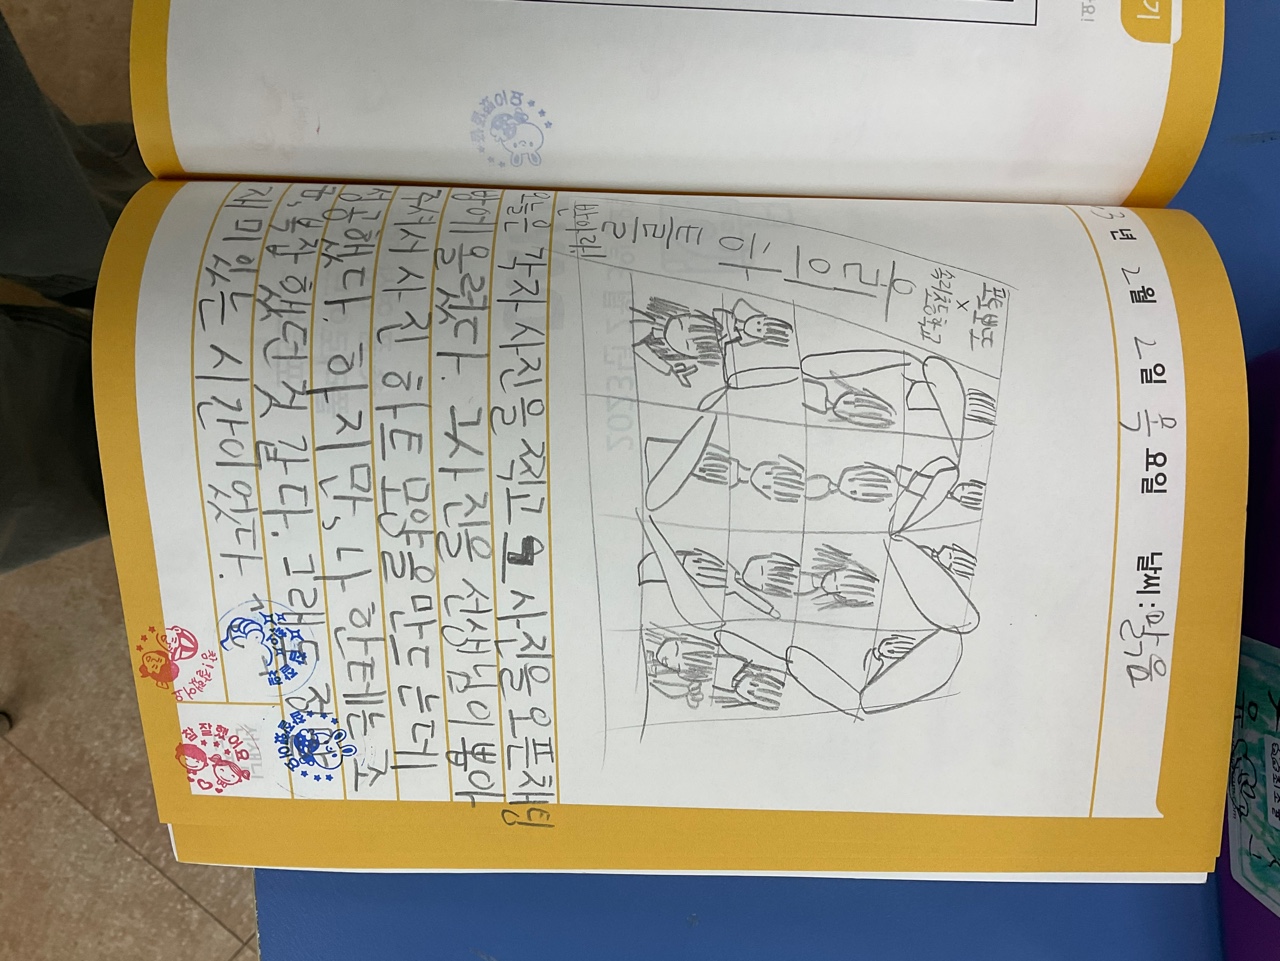 3년 2월 2일 목요일 날씨: 맑음
포토뽀또
x
속리초등학교
우리의 하트를
받아라!
오늘은 각자 사진을 찍고 그 사진을 오픈채팅
방에 올렸다. 그사 진을 선생님이 뽑아
주셔서 사진 하트 모양을 만드는데
성공했다. 하지만, 나 한테는 조
금, 복잡했던 것 같다. 그래도 정말
재미있는 시간이었다.
선생님
참! 잘했어요
참 잘했어요
기
요!